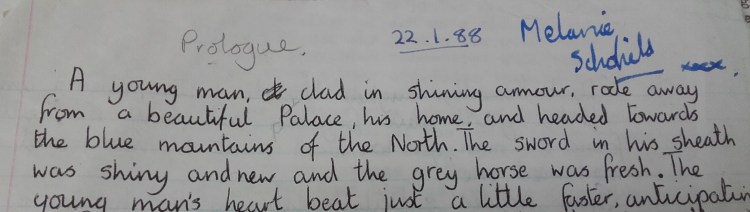 Prologue. 22.1.88 Melanie
Schofield xxxx.
A young man, clad in shining armour, rode away
from a beautiful Palace, his home, and headed towards
the blue mountains of the North. The sword in his sheath
was shiny and new and the grey horse was fresh. The
young man's heart beat just a little faster, anticipating